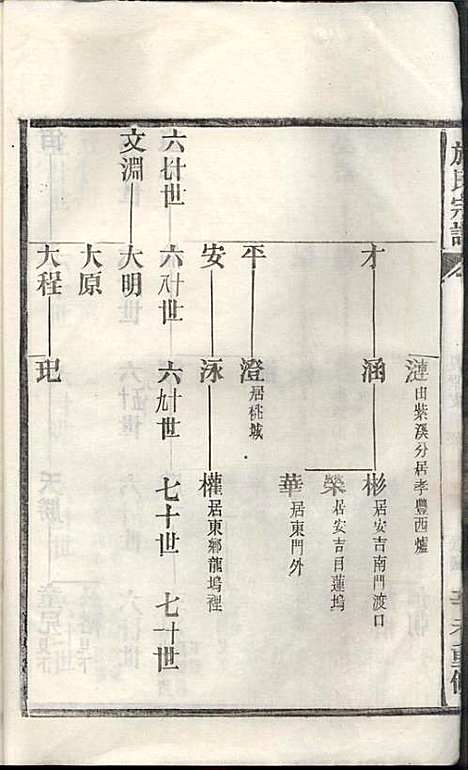 施氏宗譜
漣由紫溪分居孝豐西爐
才
涵
彬居安吉南門渡口
榮居安吉目蓮塢
華居東門外
平
澄居桃城
安
泳
權居東鄉龍塢裡
六十七世
六十八世
六十九世
七十世
七十一世
文淵
大明
大原
大程
玘